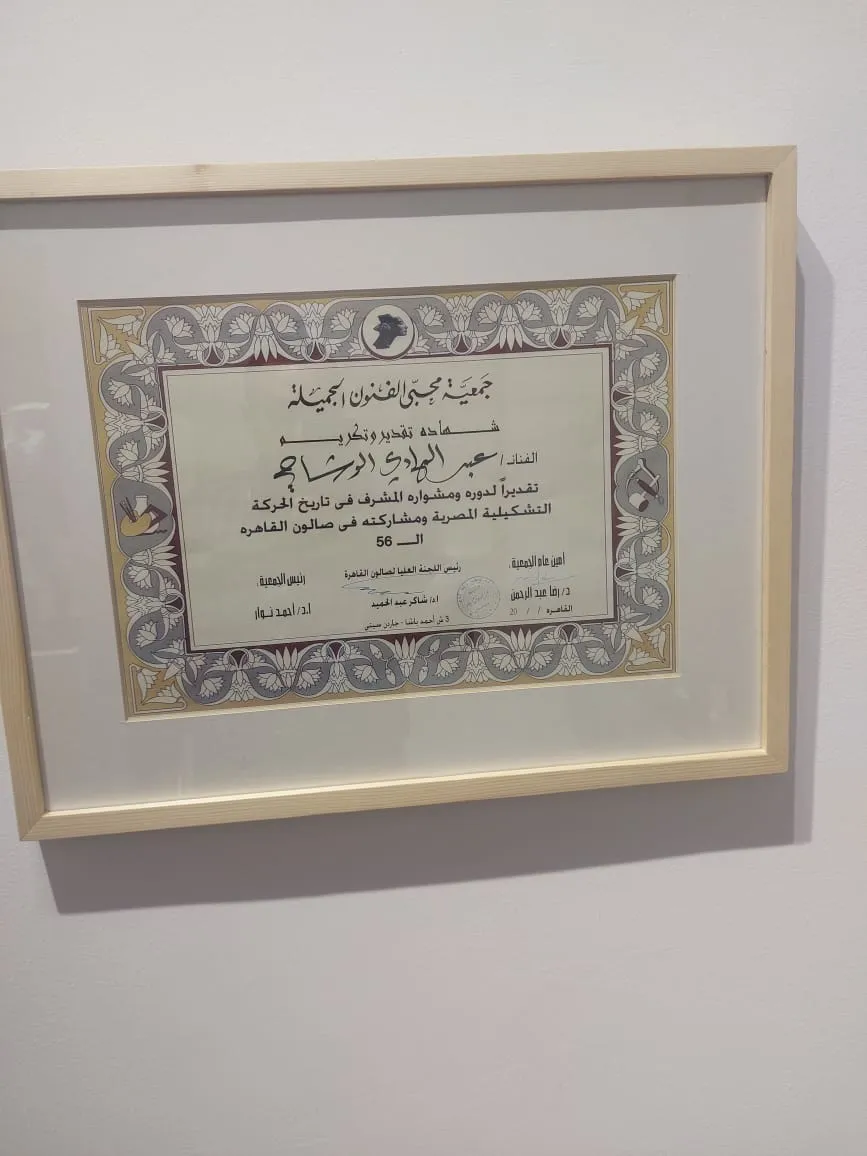 جمعية محبى الفنون الجميلة
شهاده تقدير وتكريم
الفنان / عبد الهادي الوشاحي
تقديراً لدوره ومشواره المشرف فى تاريخ الحركة
التشكيلية المصرية ومشاركته فى صالون القاهره
الـ 56
أمين عام الجمعية،
د/ رضا عبد الرحمن
القاهره / / 20
رئيس اللجنة العليا لصالون القاهرة
اد/ شاكر عبد الحميد
رئيس الجمعية،
ا.د/ احمد نوار
3 ش أحمد باشا - جاردن سيتى